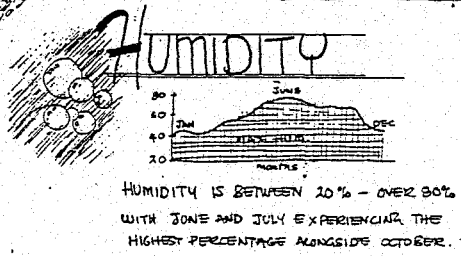 HUMIDITY
JUNE
80
60
JAN
DEC
40
MAX HUM
20
MONTHS
HUMIDITY IS BETWEEN 20% - OVER 80%
WITH JUNE AND JULY EXPERIENCING THE
HIGHEST PERCENTAGE ALONGSIDE OCTOBER.